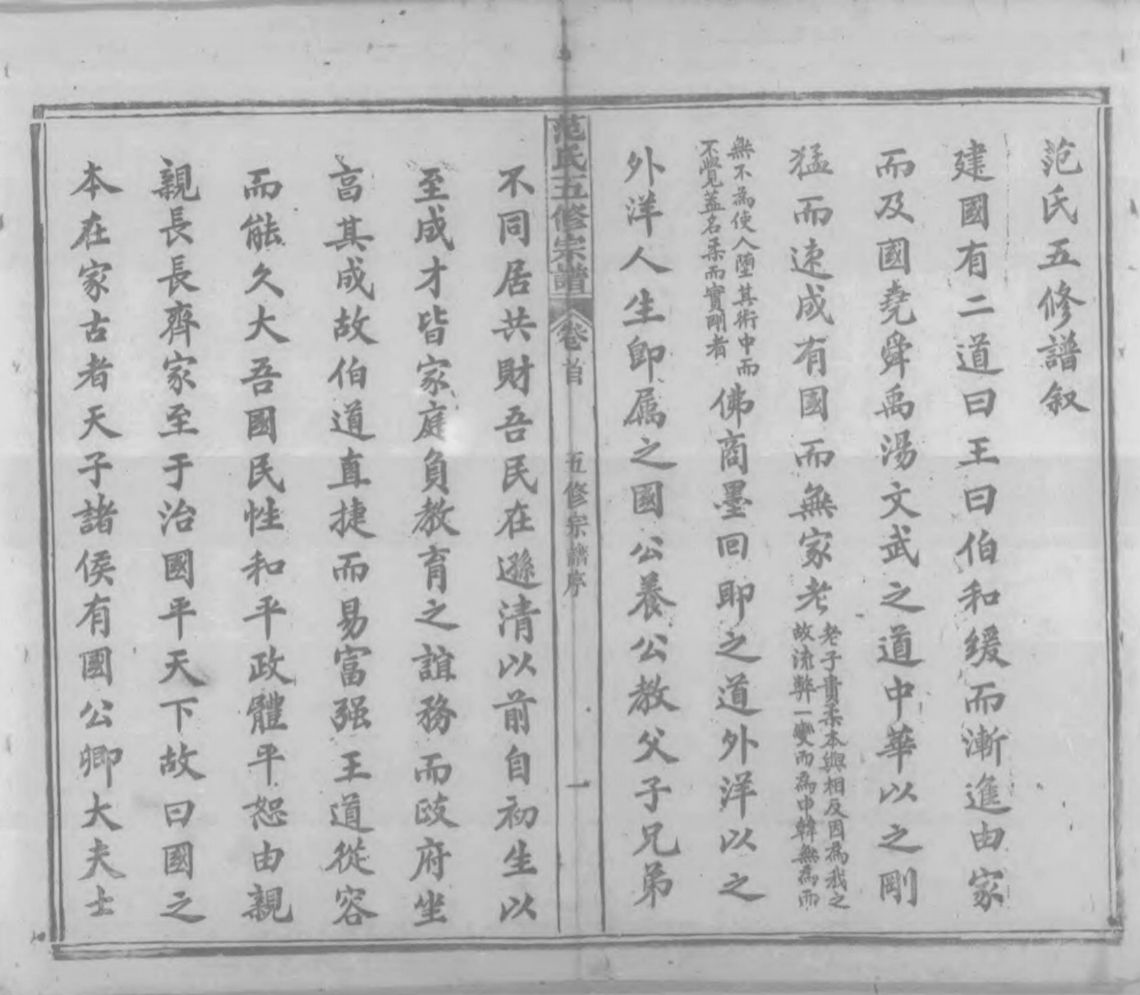 范氏五修譜叙
建國有二道曰王曰伯和緩而漸進由家
而及國堯舜禹湯文武之道中華以之剛
猛而速成有國而無家老
老子貴柔本與相反因為我之
故流弊一變而為申韓無為而
無不為使人墮其術中而
不覺蓋名柔而實剛者
佛商墨回耶之道外洋以之
外洋人生即屬之國公養公教父子兄弟
范氏五修宗譜 卷首 五修宗譜序 一
不同居共財吾民在遜清以前自初生以
至成才皆家庭負教育之誼務而政府坐
亯其成故伯道直捷而易富强王道從容
而能久大吾國民性和平政體平恕由親
親長長齊家至于治國平天下故曰國之
本在家古者天子諸侯有國公卿大夫士